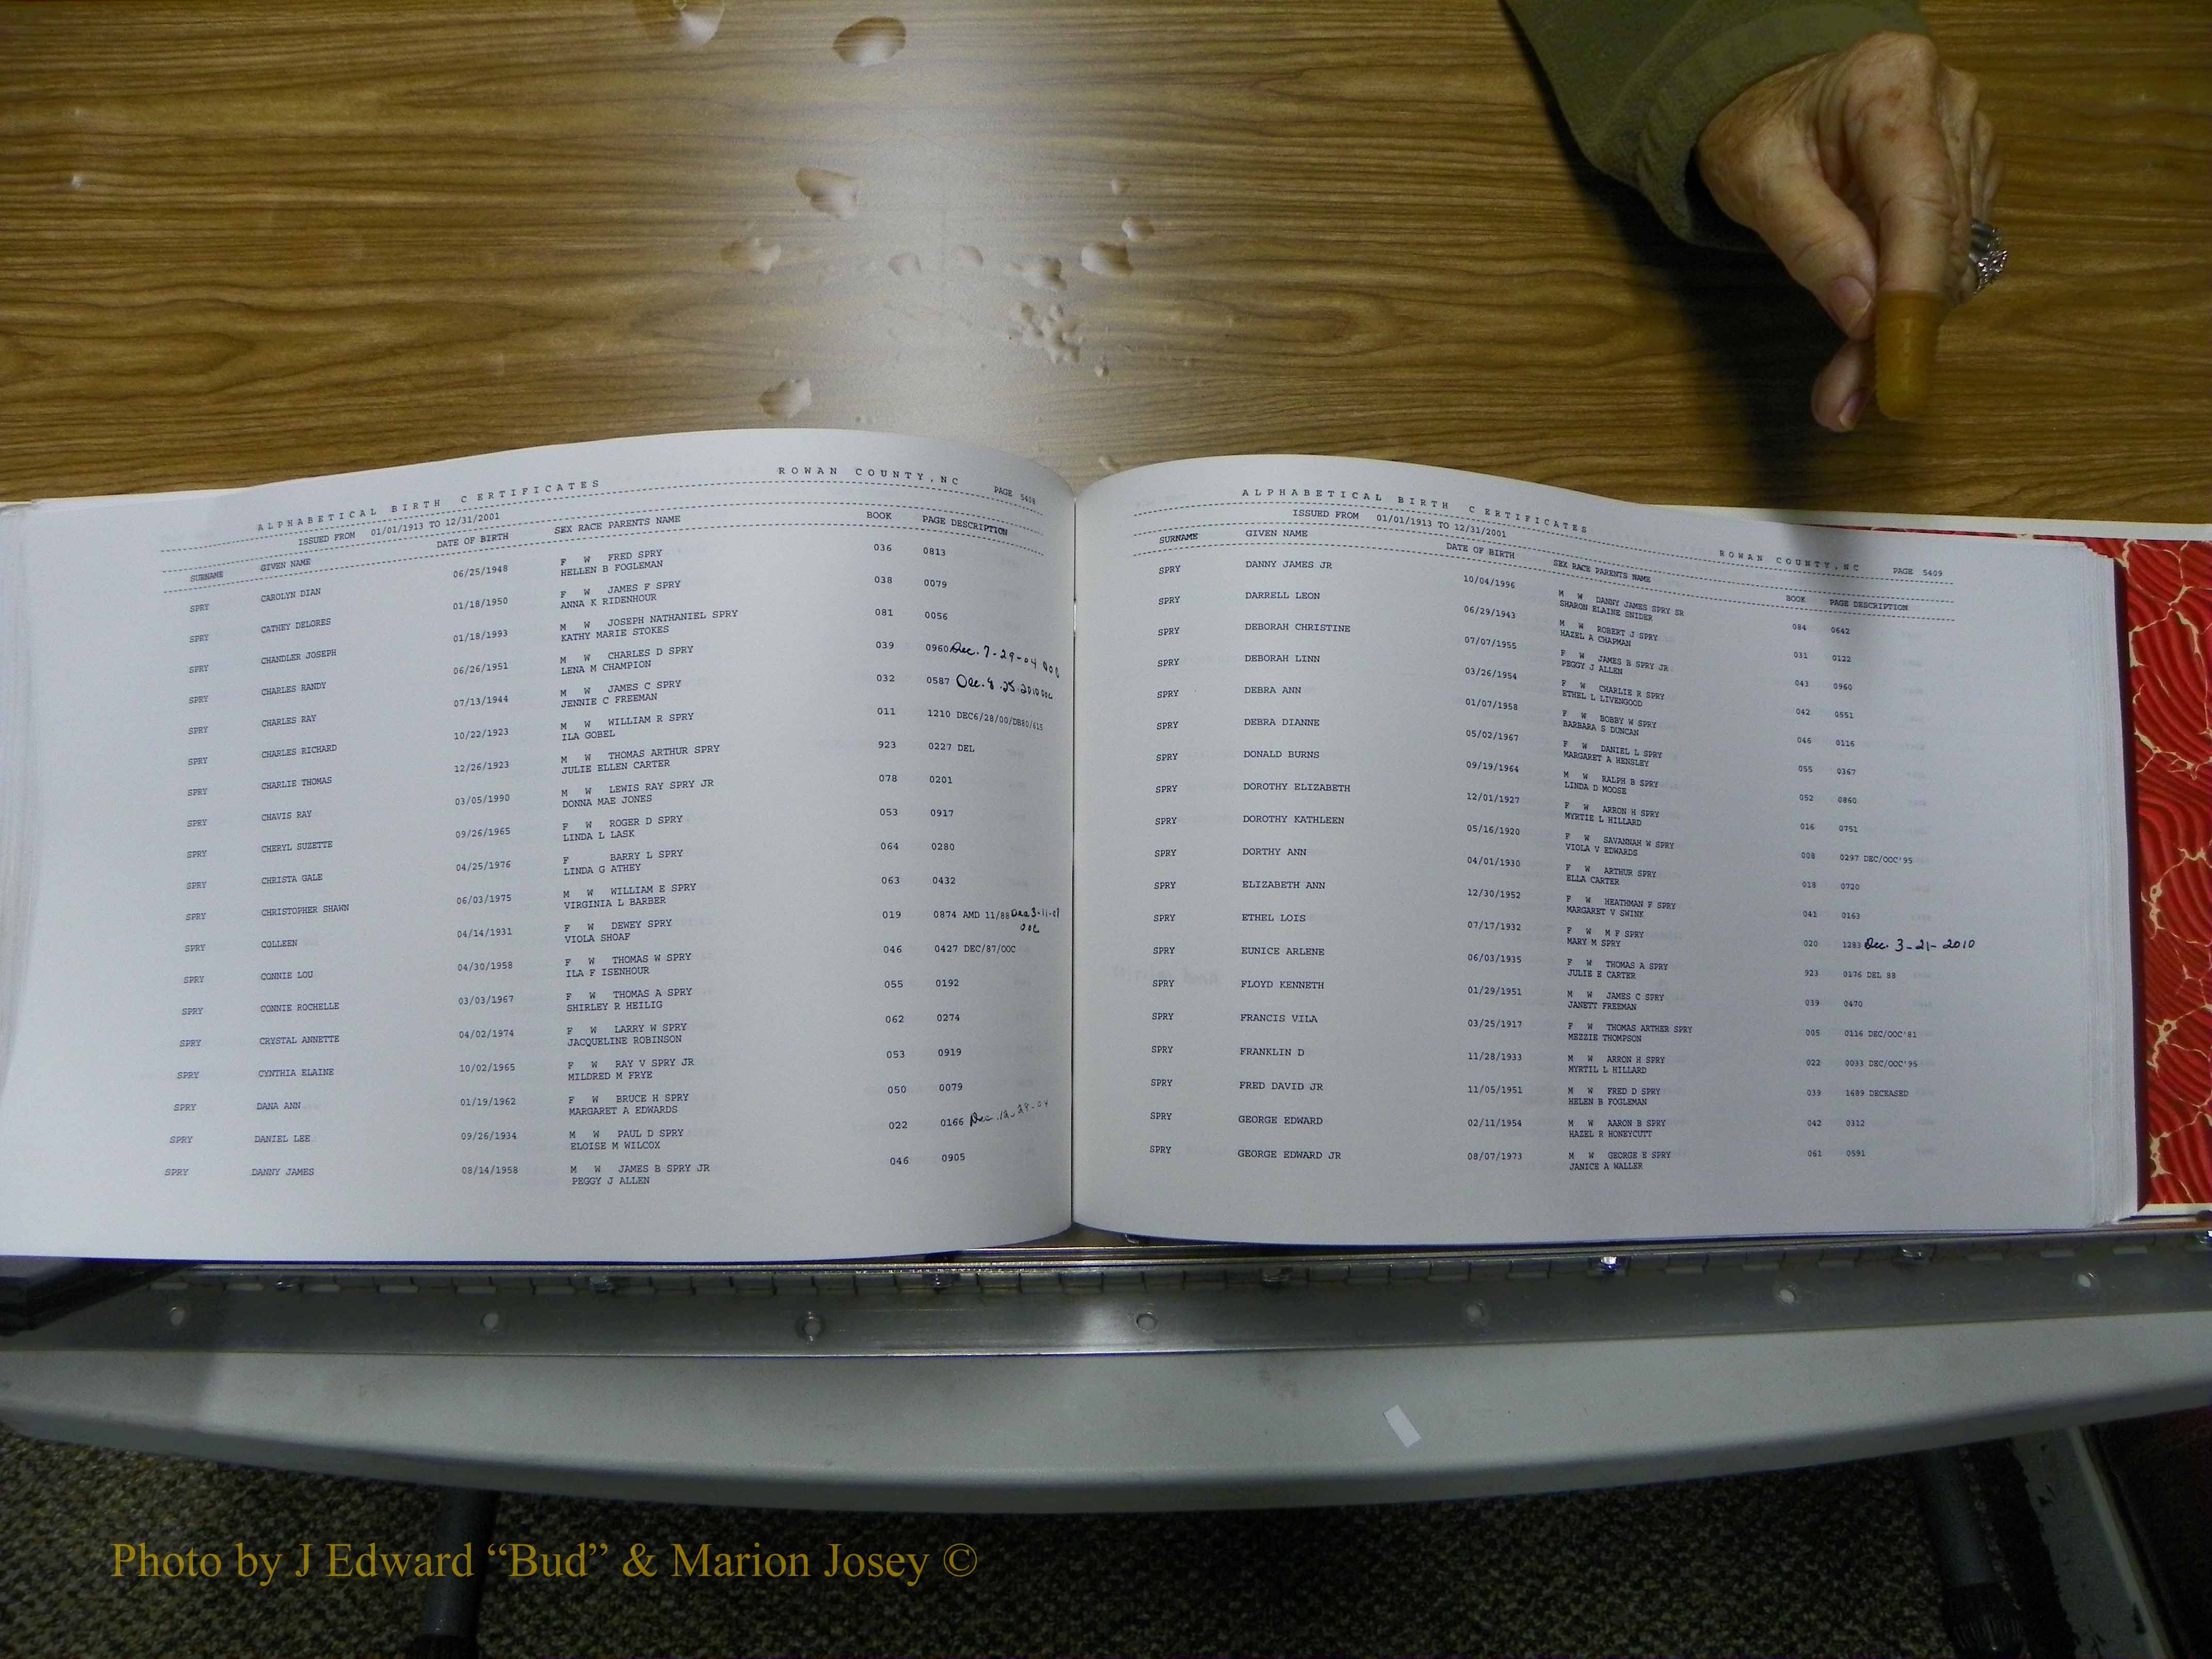 ALPHABETICAL BIRTH CERTIFICATES ROWAN COUNTY,NC PAGE 5408
ISSUED FROM 01/01/1913 TO 12/31/2001
SURNAME GIVEN NAME DATE OF BIRTH SEX RACE PARENTS NAME BOOK PAGE DESCRIPTION
SPRY CAROLYN DIAN 06/25/1948 F W FRED SPRY 036 0813
HELLEN B FOGLEMAN
SPRY CATHEY DELORES 01/18/1950 F W JAMES F SPRY 038 0079
ANNA K RIDENHOUR
SPRY CHANDLER JOSEPH 01/18/1993 M W JOSEPH NATHANIEL SPRY 081 0056
KATHY MARIE STOKES
SPRY CHARLES RANDY 06/26/1951 M W CHARLES D SPRY 039 0960 Dec. 7-29-04 OOC
LENA M CHAMPION
SPRY CHARLES RAY 07/13/1944 M W JAMES C SPRY 032 0587 Dec. 8.25.2010 OOC
JENNIE C FREEMAN
SPRY CHARLES RICHARD 10/22/1923 M W WILLIAM R SPRY 011 1210 DEC6/28/00/DB80/615
ILA GOBEL
SPRY CHARLIE THOMAS 12/26/1923 M W THOMAS ARTHUR SPRY 923 0227 DEL
JULIE ELLEN CARTER
SPRY CHAVIS RAY 03/05/1990 M W LEWIS RAY SPRY JR 078 0201
DONNA MAE JONES
SPRY CHERYL SUZETTE 09/26/1965 F W ROGER D SPRY 053 0917
LINDA L LASK
SPRY CHRISTA GALE 04/25/1976 F BARRY L SPRY 064 0280
LINDA G ATHEY
SPRY CHRISTOPHER SHAWN 06/03/1975 M W WILLIAM E SPRY 063 0432
VIRGINIA L BARBER
SPRY COLLEEN 04/14/1931 F W DEWEY SPRY 019 0874 AMD 11/88 Dec 3-11-09
VIOLA SHOAF OOC
SPRY CONNIE LOU 04/30/1958 F W THOMAS W SPRY 046 0427 DEC/87/OOC
ILA F ISENHOUR
SPRY CONNIE ROCHELLE 03/03/1967 F W THOMAS A SPRY 055 0192
SHIRLEY R HEILIG
SPRY CRYSTAL ANNETTE 04/02/1974 F W LARRY W SPRY 062 0274
JACQUELINE ROBINSON
SPRY CYNTHIA ELAINE 10/02/1965 F W RAY V SPRY JR 053 0919
MILDRED M FRYE
SPRY DANA ANN 01/19/1962 F W BRUCE H SPRY 050 0079
MARGARET A EDWARDS
SPRY DANIEL LEE 09/26/1934 M W PAUL D SPRY 022 0166 Dec.
ELOISE M WILCOX
SPRY DANNY JAMES 08/14/1958 M W JAMES B SPRY JR 046 0905
PEGGY J ALLEN
ALPHABETICAL BIRTH CERTIFICATES ROWAN COUNTY,NC PAGE 5409
ISSUED FROM 01/01/1913 TO 12/31/2001
SURNAME GIVEN NAME DATE OF BIRTH SEX RACE PARENTS NAME BOOK PAGE DESCRIPTION
SPRY DANNY JAMES JR 10/04/1996 M W DANNY JAMES SPRY SR 084 0642
SHARON ELAINE SNIDER
SPRY DARRELL LEON 06/29/1943 M W ROBERT J SPRY 031 0122
HAZEL A CHAPMAN
SPRY DEBORAH CHRISTINE 07/07/1955 F W JAMES B SPRY JR 043 0960
PEGGY J ALLEN
SPRY DEBORAH LINN 03/26/1954 F W CHARLIE R SPRY 042 0551
ETHEL L LIVENGOOD
SPRY DEBRA ANN 01/07/1958 F W BOBBY W SPRY 046 0116
BARBARA S DUNCAN
SPRY DEBRA DIANNE 05/02/1967 F W DANIEL L SPRY 055 0367
MARGARET A HENSLEY
SPRY DONALD BURNS 09/19/1964 M W RALPH B SPRY 052 0860
LINDA D MOOSE
SPRY DOROTHY ELIZABETH 12/01/1927 F W ARRON H SPRY 016 0751
MYRTIE L HILLARD
SPRY DOROTHY KATHLEEN 05/16/1920 F W SAVANNAH W SPRY 008 0297 DEC/OOC'95
VIOLA V EDWARDS
SPRY DORTHY ANN 04/01/1930 F W ARTHUR SPRY 018 0720
ELLA CARTER
SPRY ELIZABETH ANN 12/30/1952 F W HEATHMAN F SPRY 041 0163
MARGARET V SWINK
SPRY ETHEL LOIS 07/17/1932 F W M F SPRY 020 1283 Dec. 3-21-2010
MARY M SPRY
SPRY EUNICE ARLENE 06/03/1935 F W THOMAS A SPRY 923 0176 DEL 88
JULIE E CARTER
SPRY FLOYD KENNETH 01/29/1951 M W JAMES C SPRY 039 0470
JANETT FREEMAN
SPRY FRANCIS VILA 03/25/1917 F W THOMAS ARTHER SPRY 005 0116 DEC/OOC'81
MEZZIE THOMPSON
SPRY FRANKLIN D 11/28/1933 M W ARRON H SPRY 022 0033 DEC/OOC'95
MYRTIL L HILLARD
SPRY FRED DAVID JR 11/05/1951 M W FRED D SPRY 039 1689 DECEASED
HELEN B FOGLEMAN
SPRY GEORGE EDWARD 02/11/1954 M W AARON B SPRY 042 0312
HAZEL R HONEYCUTT
SPRY GEORGE EDWARD JR 08/07/1973 M W GEORGE E SPRY 061 0591
JANICE A WALLER
Photo by J Edward “Bud” & Marion Josey ©